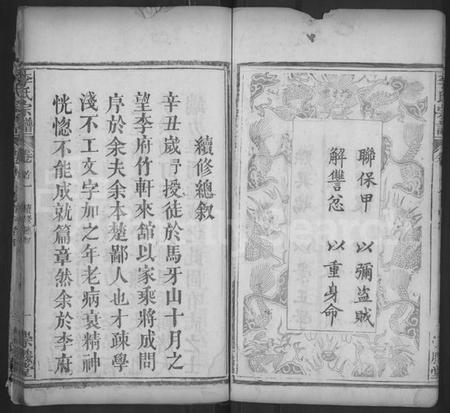 聯保甲　以彌盜賊
解讐忿　以重身命
續修總敘
辛丑歲予授徒於馬牙山十月之
望李府竹軒來舘以家乘將成問
序於余夫余本楚鄙人也才疎學
淺不工文字加之年老病衰精神
恍惚不能成就篇章然余於李府